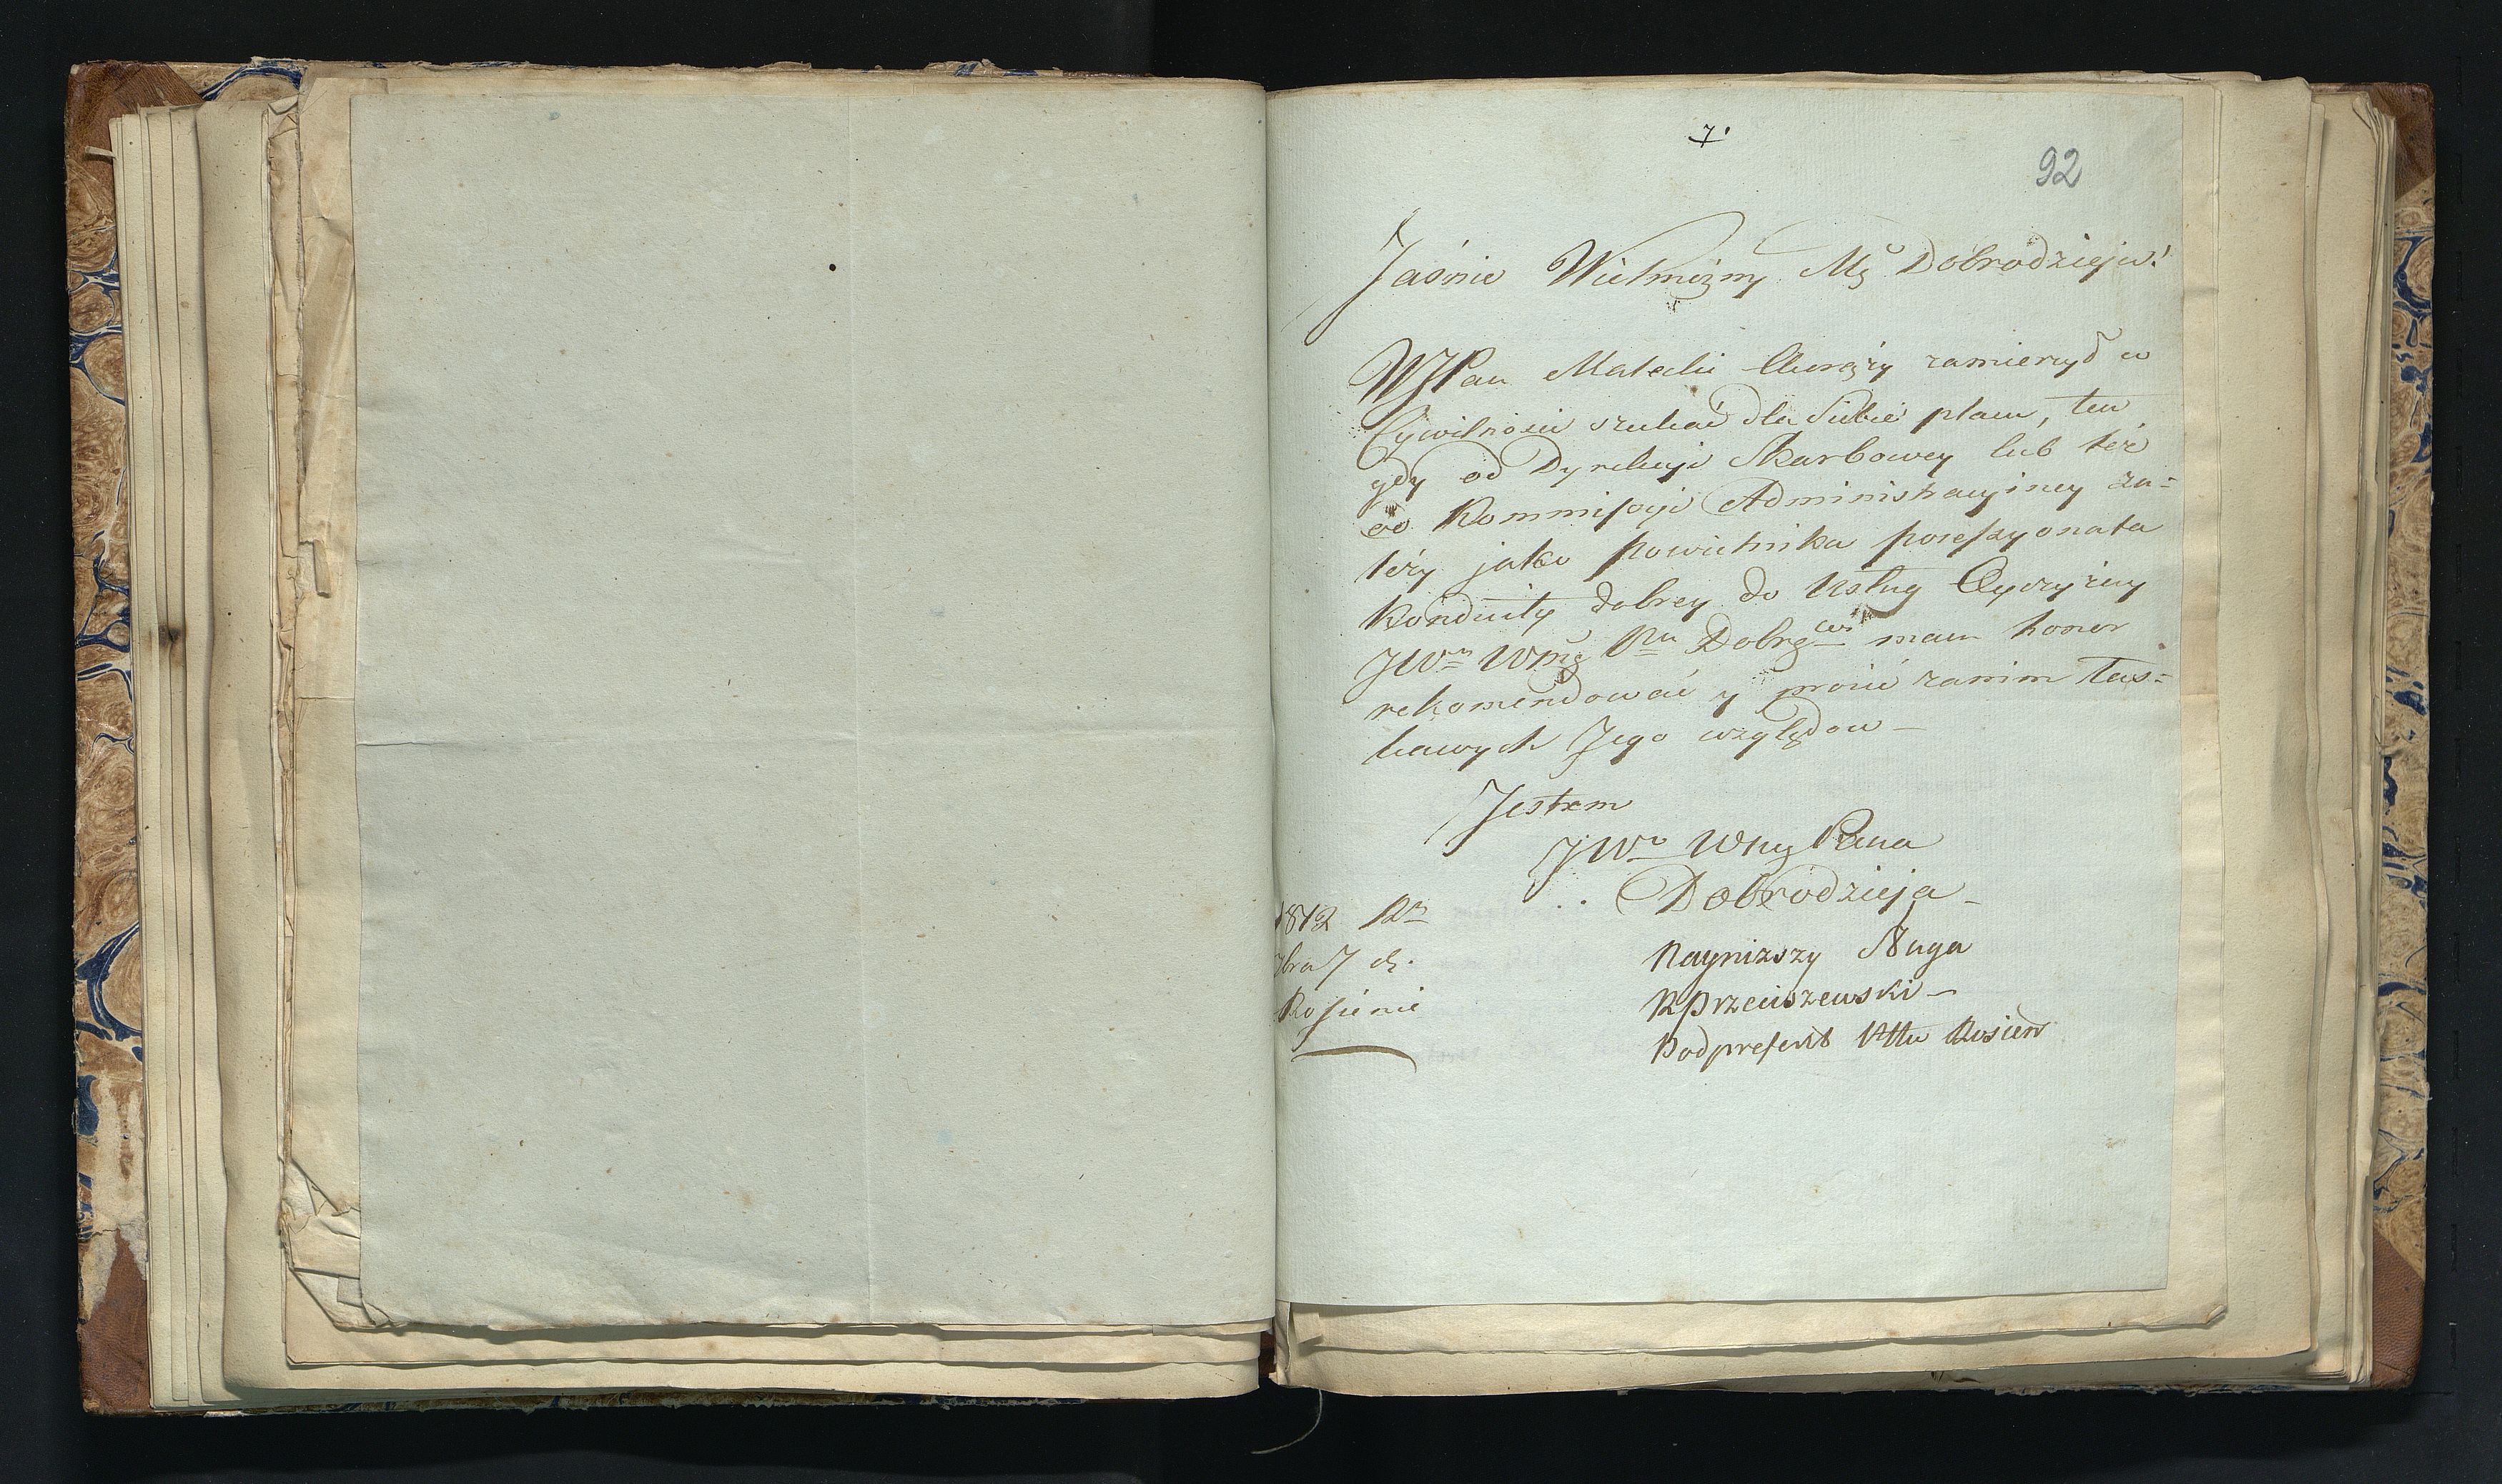 7.
92
Jaśnie Wielmożny Mg Dobrodzieju!
WJPan Malecki Chorąży zamierzył w
Cywilności szukać dla Siebie placu, ten
gdy od Dyrekcyi Skarbowey lub też
od Kommissyi Administracyiney za=
leży jako Powietnika possessyonata
Konduity dobrey do Usług Oyczyzny
JWu Wmg Pu Dobrg mam honor
rekomendować y prosić zanim łas=
kawych Jego względow –
Jestem
JWo Wmg Pana
Dobrodzieja –
1812 Ru
7bra 7 d.
Rossienie
Nayniższy Sługa
R Przeciszewski –
Podprefekt Pttu Rosień